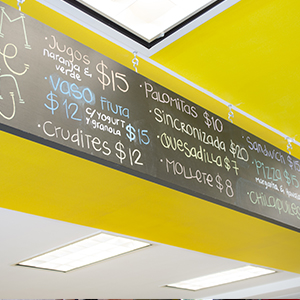 ·Jugos $15
naranja &
verde
·Vaso Fruta
$12 c/yogurt
y granola $15
·Crudites $12
·Palomitas $10
·Sincronizada $20
·Quesadilla $7
·Mollete $8
·Sandwich $15
·Pizza $15